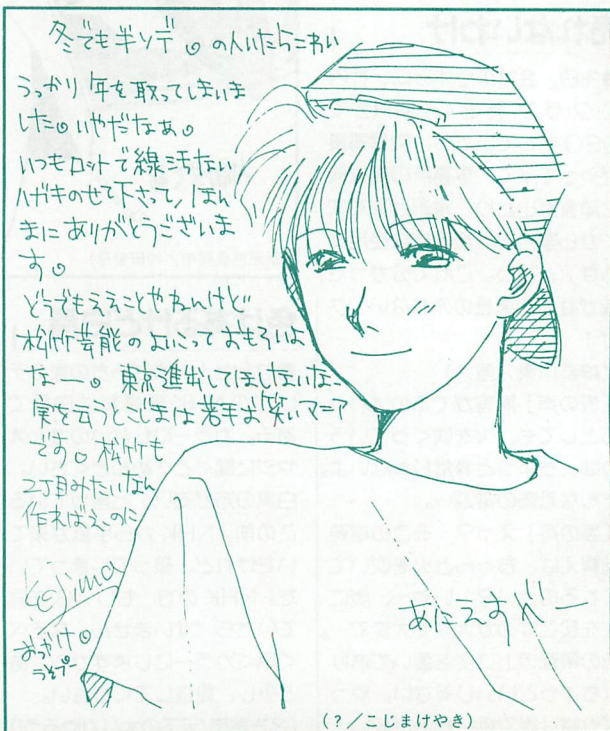 冬でも半ソデ。の人いたらこわい
うっかり年を取ってしまいま
した。いやだなぁ。
いつもロットで線汚ない
ハガキのせて下さって、ほん
まにありがとうございま
す。
どうでもええことやねんけど
松竹芸能の よいこっておもろいよ
なー。東京進出してほしないなー
実を云うとこじまは若手お笑いマニア
です。松竹も
2丁目みたいなん
作ればええのに
Kojima
おっかけ。
うそプー
あにえすべー
(?/こじまけやき)